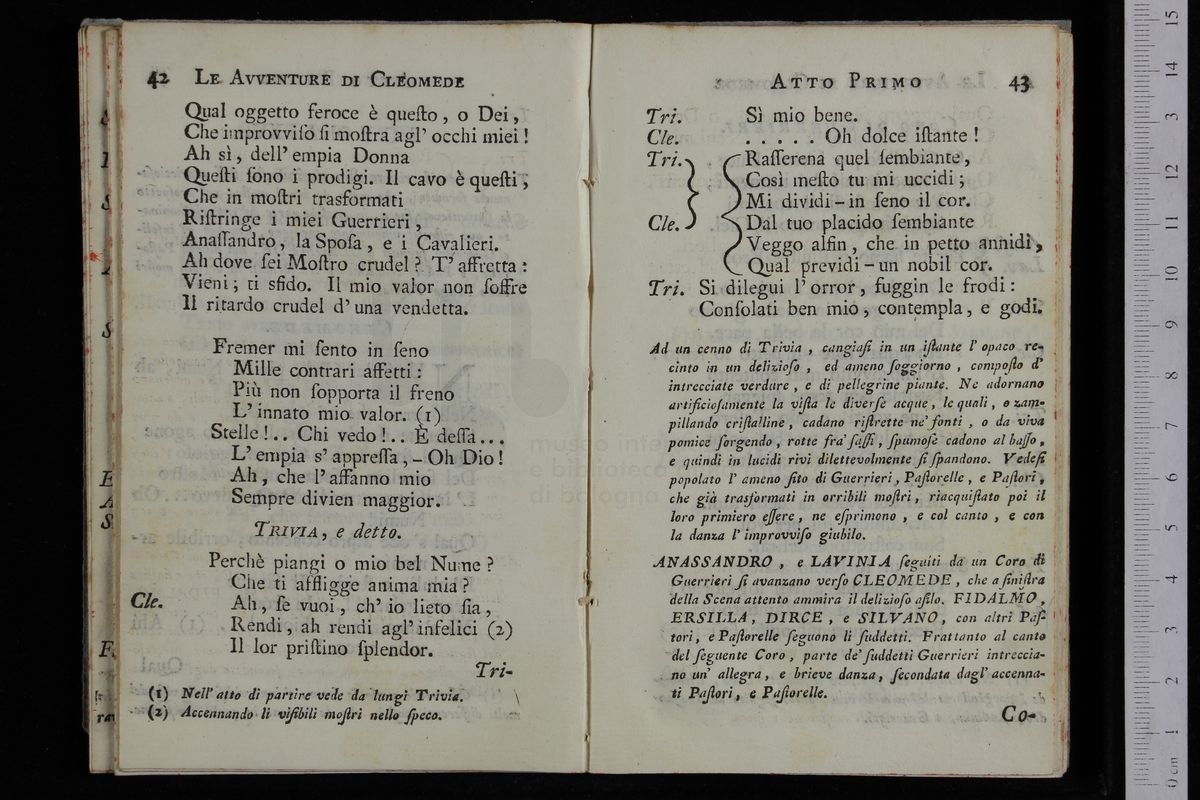 42 LE AVVENTURE DI CLEOMEDE
Qual oggetto feroce è queſto, o Dei,
Che improvviſo ſi moſtra agl' occhi miei!
Ah sì, dell' empia Donna
Queſti ſono i prodigi. Il cavo è queſti,
Che in moſtri trasformati
Riſtringe i miei Guerrieri,
Anaſſandro, la Spoſa, e i Cavalieri.
Ah dove ſei Moſtro crudel? T' affretta:
Vieni; ti sfido. Il mio valor non ſoffre
Il ritardo crudel d' una vendetta.
Fremer mi ſento in ſeno
Mille contrari affetti:
Più non ſopporta il freno
L' innato mio valor. (1)
Stelle!.. Chi vedo!.. È deſſa...
L' empia s' appreſſa, – Oh Dio!
Ah, che l' affanno mio
Sempre divien maggior.
TRIVIA, e detto.
Perchè piangi o mio bel Nume?
Che ti affligge anima mia?
Cle. Ah, ſe vuoi, ch' io lieto ſia,
Rendi, ah rendi agl' infelici (2)
Il lor priſtino ſplendor.
Tri-
(1) Nell' atto di partire vede da lungi Trivia.
(2) Accennando li viſibili moſtri nello ſpeco.
ATTO PRIMO 43
Tri. Sì mio bene.
Cle. . . . . . Oh dolce iſtante!
Tri. Raſſerena quel ſembiante,
Così meſto tu mi uccidi;
Mi dividi – in ſeno il cor.
Cle. Dal tuo placido ſembiante
Veggo alfin, che in petto annidi,
Qual previdi – un nobil cor.
Tri. Si dilegui l' orror, fuggin le frodi:
Conſolati ben mio, contempla, e godi.
Ad un cenno di Trivia, cangiaſi in un iſtante l' opaco re-
cinto in un delizioſo, ed ameno ſoggiorno, compoſto d'
intrecciate verdure, e di pellegrine piante. Ne adornano
artificioſamente la viſta le diverſe acque, le quali, o zam-
pillando criſtalline, cadano riſtrette ne' fonti, o da viva
pomice ſorgendo, rotte fra' ſaſſi, ſpumoſe cadono al baſſo,
e quindi in lucidi rivi dilettevolmente ſi ſpandono. Vedeſi
popolato l' ameno ſito di Guerrieri, Paſtorelle, e Paſtori,
che già trasformati in orribili moſtri, riacquiſtato poi il
loro primiero eſſere, ne eſprimono, e col canto, e con
la danza l' improvviſo giubilo.
ANASSANDRO, e LAVINIA ſeguiti da un Coro di
Guerrieri ſi avanzano verſo CLEOMEDE, che a ſiniſtra
della Scena attento ammira il delizioſo aſilo. FIDALMO,
ERSILLA, DIRCE, e SILVANO, con altri Paſ-
tori, e Paſtorelle ſeguono li ſuddetti. Frattanto al canto
del ſeguente Coro, parte de' ſuddetti Guerrieri intreccia-
no un' allegra, e brieve danza, ſecondata dagl' accenna-
ti Paſtori, e Paſtorelle.
Co-